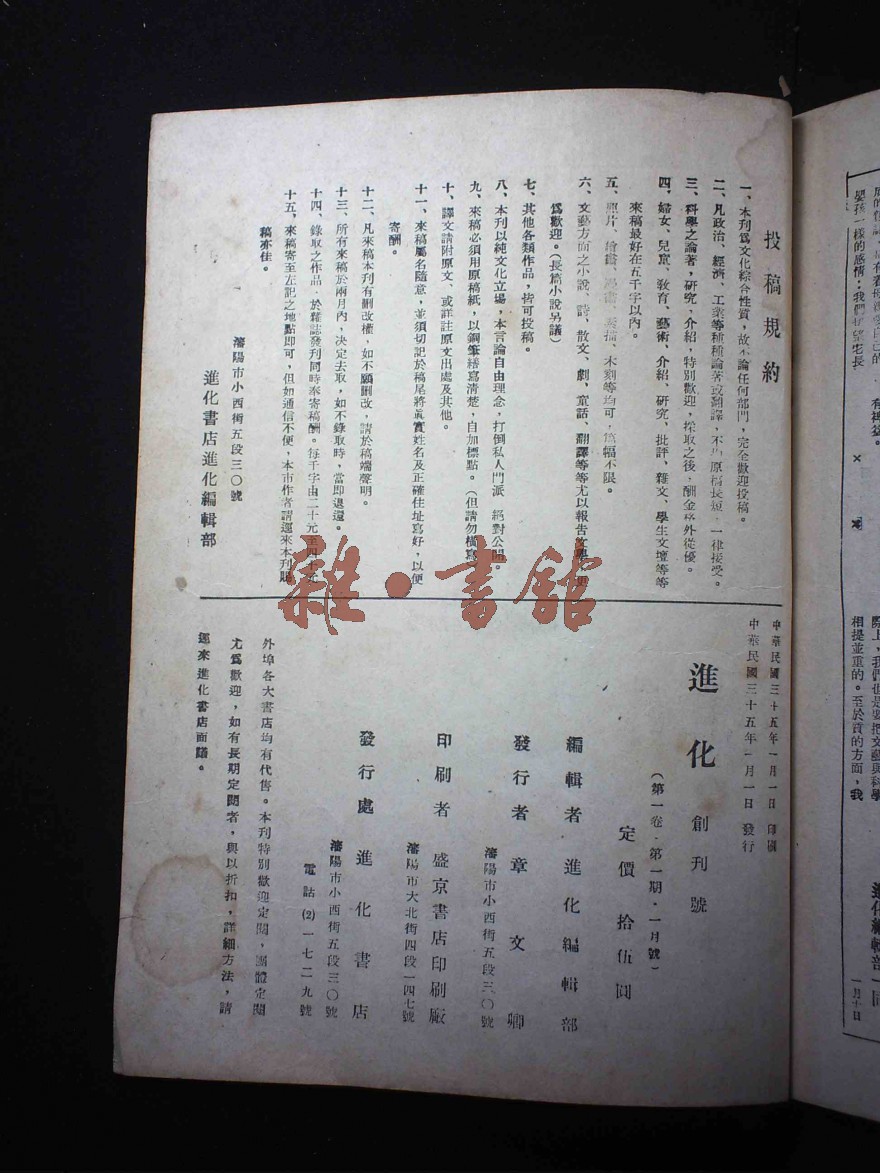 投稿規約
一、本刊爲文化綜合性質，故不論任何部門，完全歡迎投稿。
二、凡政治、經濟、工業等種種論著或翻譯，不，原稿長短，一律接受。
三、科學之論著，研究，介紹，特別歡迎，採取之後，酬金格外從優。
四、婦女、兒童、敎育、藝術、介紹、研究、批評、雜文、學生文壇等等
來稿最好在五千字以內。
五、照片、繪畫、漫畫、素描、木刻等均可，篇幅不限。
六、文藝方面之小說、詩、散文、劇、童話、翻譯等等尤以報告文學，更
爲歡迎。（長篇小說另議）
七、其他各類作品，皆可投稿。
八、本刊以純文化立場，本言論自由理念，打倒私人門派 絕對公開。
九、來稿必須用原稿紙，以鋼筆繕寫清楚，自加標點。（但請勿橫寫）
十、譯文請附原文、或詳註原文出處及其他。
十一、來稿屬名隨意，並須切記於稿尾將眞實姓名及正確住址寫好，以便
寄酬。
十二、凡來稿本刊有刪改權，如不願刪改，請於稿端聲明。
十三、所有來稿於兩月內，決定去取，如不錄取時，當即退還。
十四、錄取之作品，於雜誌發刊同時奉寄稿酬。每千字由二十元至四十元
十五、來稿寄至左記之地點即可，但如通信不便，本市作者請逕來本刊
稿亦佳。
瀋陽市小西街五段三〇號
進化書店進化編輯部
中華民國三十五年一月一日 印刷
中華民國三十五年一月一日 發行
進化 創刊號
（第一卷・第一期・一月號）
定價拾伍圓
編輯者 進化編輯部
發行者 章文卿
瀋陽市小西街五段三〇號
印刷者 盛京書店印刷廠
瀋陽市大北街四段一四七號
發行處 進化書店
瀋陽市小西街五段三〇號
電話(2)一七二九號
外埠各大書店均有代售。本刊特別歡迎定閱，團體定閱
尤爲歡迎，如有長期定閱者，與以折扣，詳細方法，請
逕來進化書店面議。
雜・書館
嬰孩一樣的感情；我們
有裨益。
際上，我們也是要把文藝與科學
相提並重的。至於質的方面，我
進化編輯部一同
一月十日